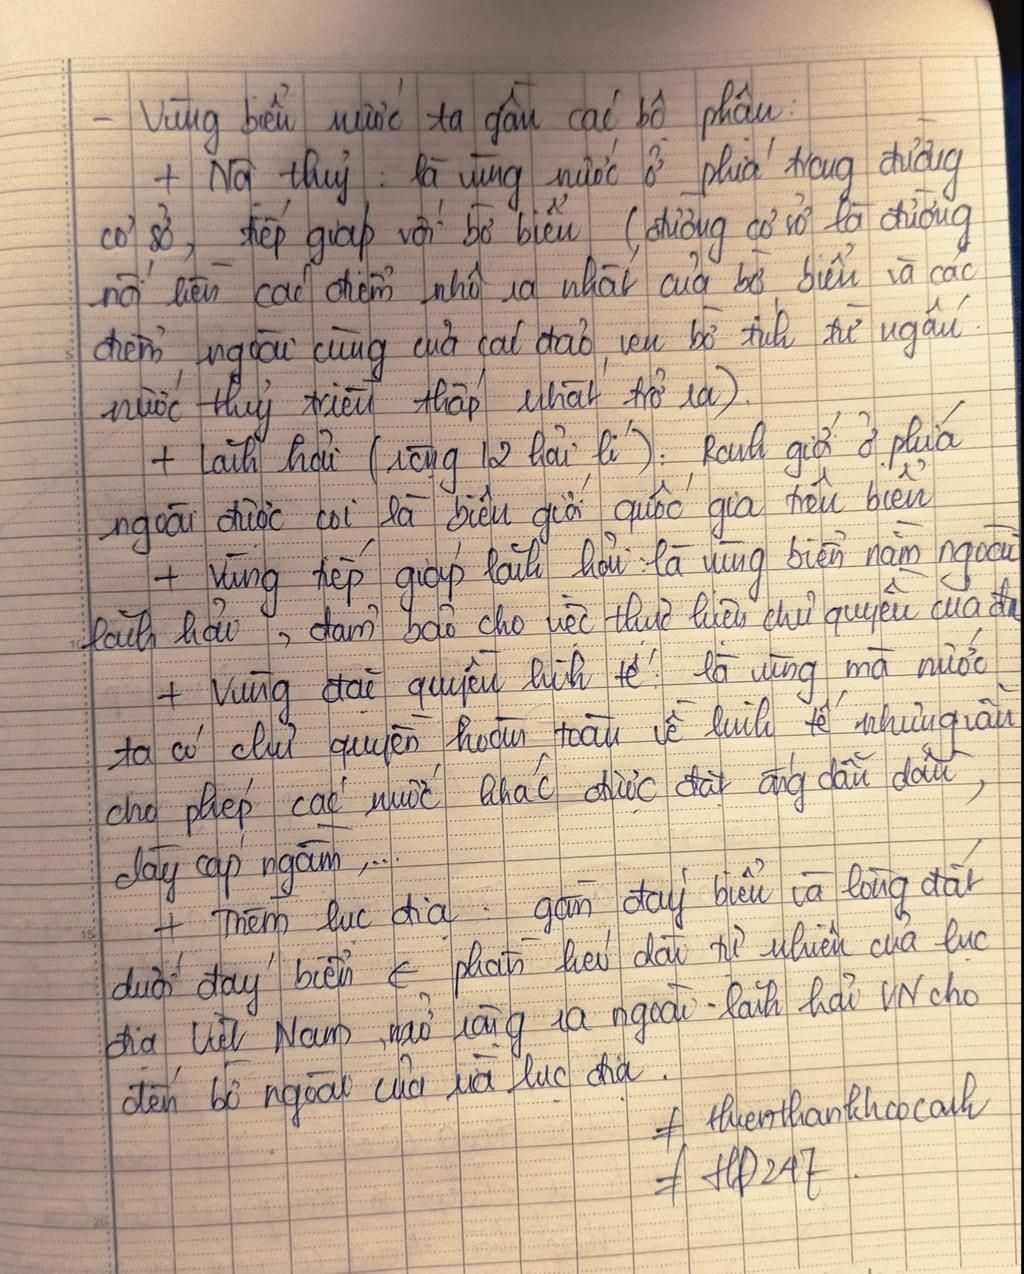 - Vùng biển nước ta gồm các bộ phận:
+ Nội thuỷ: là vùng nước ở phía trong đường
cơ sở, tiếp giáp với bờ biển (đường cơ sở là đường
nối liền các điểm nhô ra nhất của bờ biển và các
điểm ngoài cùng của các đảo ven bờ tính từ ngấn
nước thuỷ triều thấp nhất trở ra).
+ Lãnh hải (rộng 12 hải lí): Ranh giới ở phía
ngoài được coi là biên giới quốc gia trên biển
+ Vùng tiếp giáp lãnh hải là vùng biển nằm ngoài
lãnh hải, đảm bảo cho việc thực hiện chủ quyền của
+ Vùng đặc quyền kinh tế: là vùng mà nước
ta có chủ quyền hoàn toàn về kinh tế nhưng vẫn
cho phép các nước khác được đặt ống dẫn dầu,
dây cáp ngầm,...
+ Thềm lục địa: gồm đáy biển và lòng đất
dưới đáy biển ← phần kéo dài tự nhiên của lục
địa Việt Nam, mở rộng ra ngoài lãnh hải VN cho
đến bờ ngoài của rìa lục địa.
≠ thienthankhcocanh
≠ HP247